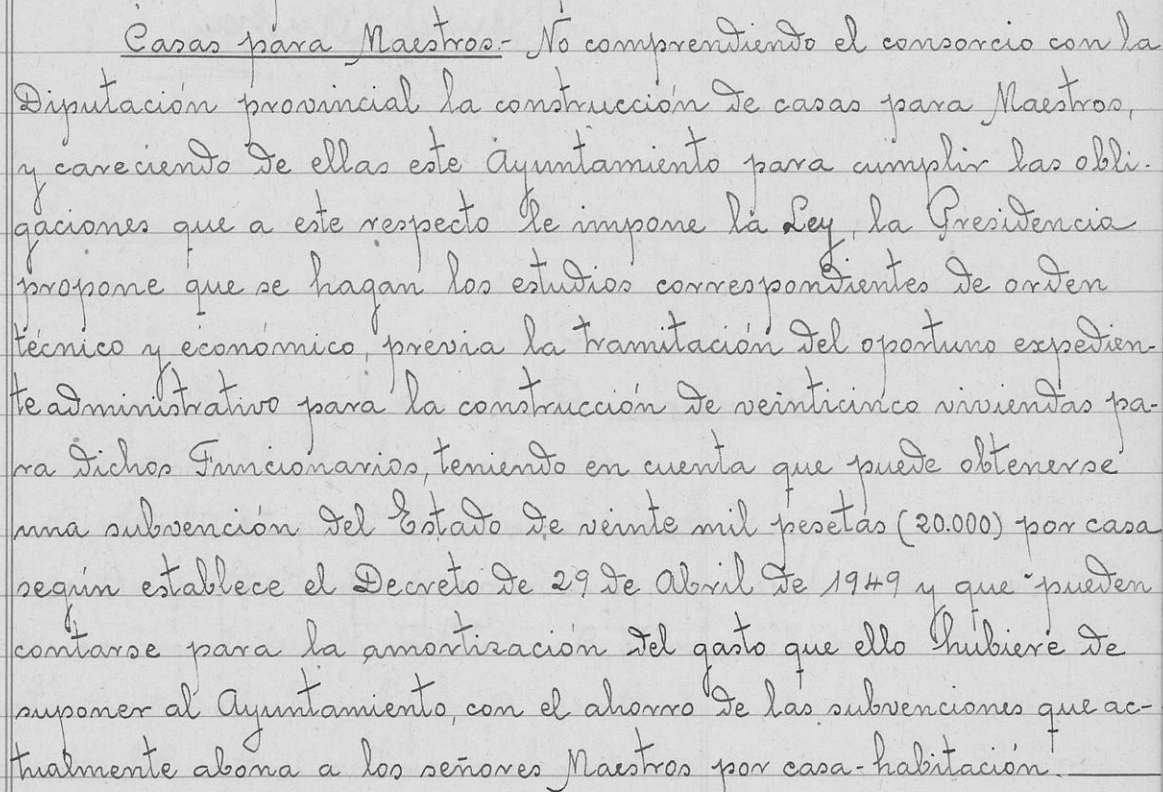 Casas para Maestros.- No comprendiendo el consorcio con la
Diputación provincial la construcción de casas para Maestros,
y careciendo de ellas este Ayuntamiento para cumplir las obli-
gaciones que a este respecto le impone la Ley, la Presidencia
propone que se hagan los estudios correspondientes de orden
técnico y económico, previa la tramitación del oportuno expedien-
te administrativo para la construcción de veinticinco viviendas pa-
ra dichos Funcionarios, teniendo en cuenta que puede obtenerse
una subvención del Estado de veinte mil pesetas (20.000) por casa
según establece el Decreto de 29 de Abril de 1949 y que pueden
contarse para la amortización del gasto que ello hubiere de
suponer al Ayuntamiento, con el ahorro de las subvenciones que ac-
tualmente abona a los señores Maestros por casa-habitación.